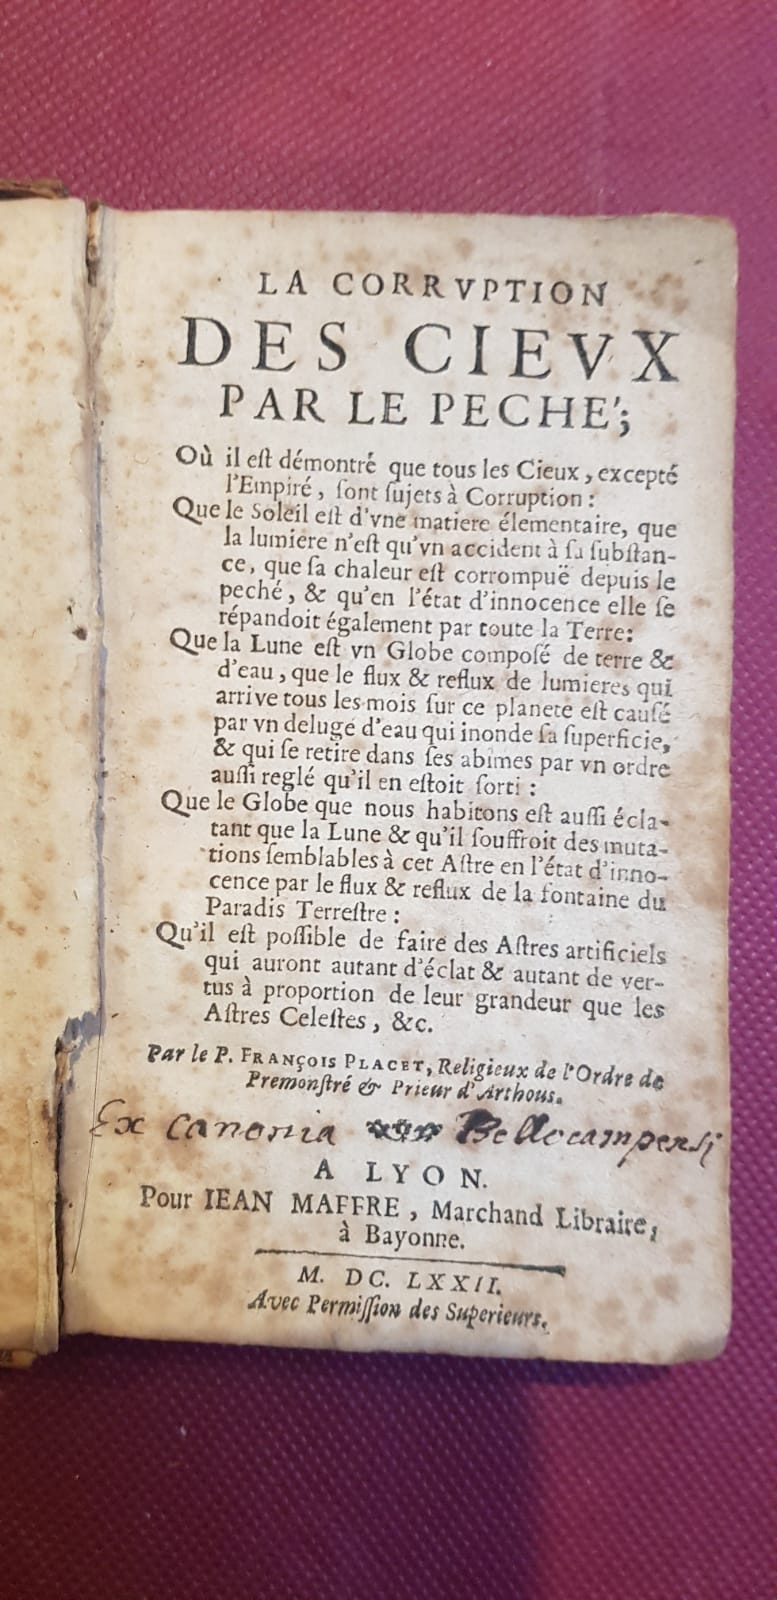 LA CORRVPTION
DES CIEVX
PAR LE PECHE';
Où il eſt démontré que tous les Cieux, excepté
l'Empiré, ſont ſujets à Corruption :
Que le Soleil eſt d'vne matiere élementaire, que
la lumiere n'eſt qu'vn accident à ſa ſubſtan-
ce, que ſa chaleur eſt corrompuë depuis le
peché, & qu'en l'état d'innocence elle ſe
répandoit également par toute la Terre:
Que la Lune eſt vn Globe compoſé de terre &
d'eau, que le flux & reflux de lumieres qui
arrive tous les mois ſur ce planete eſt cauſé
par vn deluge d'eau qui inonde ſa ſuperficie,
& qui ſe retire dans ſes abimes par vn ordre
auſſi reglé qu'il en eſtoit ſorti :
Que le Globe que nous habitons eſt auſſi écla-
tant que la Lune & qu'il ſouffroit des muta-
tions ſemblables à cet Aſtre en l'état d'inno-
cence par le flux & reflux de la fontaine du
Paradis Terreſtre :
Qu'il eſt poſſible de faire des Aſtres artificiels
qui auront autant d'éclat & autant de ver-
tus à proportion de leur grandeur que les
Aſtres Celeſtes, &c.
Par le P. FRANÇOIS PLACET, Religieux de l'Ordre de
Premonſtré & Prieur d'Arthous.
Ex canonia Bellocampensi
A LYON.
Pour IEAN MAFFRE, Marchand Libraire,
à Bayonne.
M. DC. LXXII.
Avec Permiſſion des Superieurs.